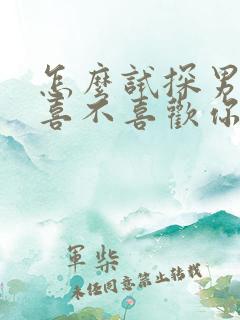 怎麼試探男
喜不喜歡你
軍柴
未任同意禁止转载